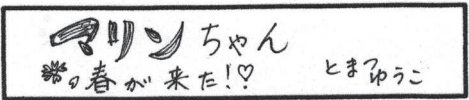 マリンちゃん
春が来た!!♡
とまつゆうこ